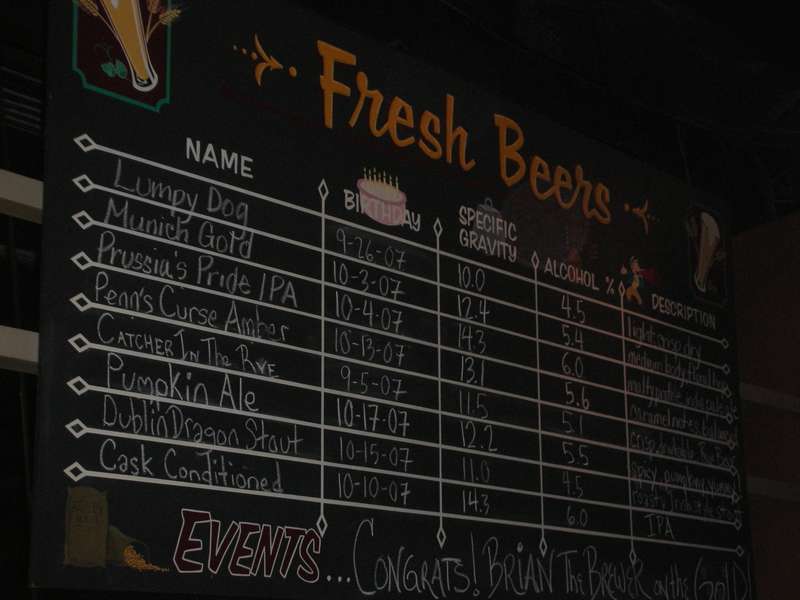 Fresh Beers
NAME BIRTHDAY SPECIFIC GRAVITY ALCOHOL % DESCRIPTION
Lumpy Dog 9-26-07 10.0 4.5 light crisp dry
Munich Gold 10-3-07 12.4 5.4 medium body floral hop
Prussia's Pride IPA 10-4-07 14.3 6.0
Penn's Curse Amber 10-13-07 13.1 5.6 caramel notes
CATCHER IN THE RYE 9-5-07 11.5 5.1 crisp drinkable Rye
Pumpkin Ale 10-17-07 12.2 5.5 spicy pumpkin yummy
Dublin Dragon Stout 10-15-07 11.0 4.5 roasty Irish style stout
Cask Conditioned 10-10-07 14.3 6.0 IPA
EVENTS ... CONGRATS! BRIAN THE BREWER on the GOLD